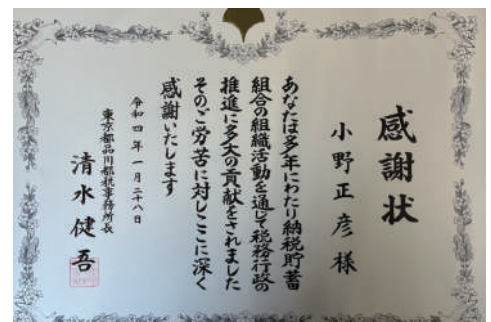 感謝状
小野正彦様
あなたは多年にわたり納税貯蓄
組合の組織活動を通じて税務行政の
推進に多大の貢献をされました
そのご労苦に対しここに深く
感謝いたします
令和四年一月二十八日
東京都品川都税事務所長
清水健吾